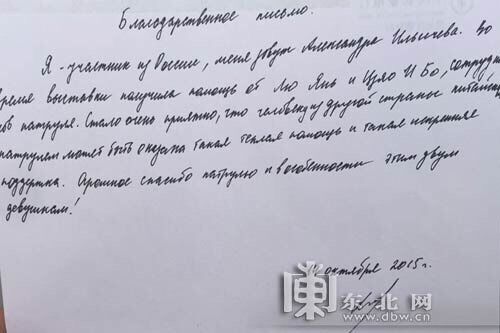 Благодарственное письмо.
Я - участник из России, меня зовут Александра Ильичева. Во
время выставки получила помощь от Лю Янь и Цзяо И Бо, сотрудни
ков патруля. Стало очень приятно, что человеку из другой страны китайским
патрулем может быть оказана такая теплая помощь и такая искренняя
поддержка. Огромное спасибо патрулю и в особенности этим двум
девушкам!
октября 2015г.
东北网
www.dbw.cn